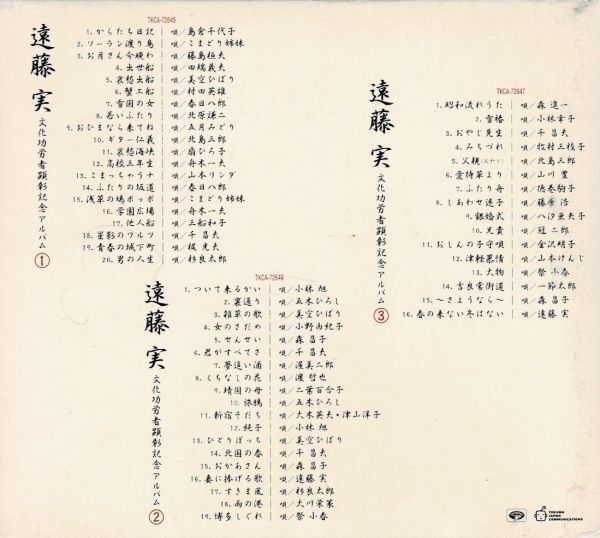 TKCA-72645
遠藤 実
文化功労者顕彰記念アルバム
①
1. からたち日記 唄／島倉千代子
2. ソーラン渡り鳥 唄／こまどり姉妹
3. お月さん今晩わ 唄／藤島桓夫
4. 出世船 唄／田端義夫
5. 哀愁出船 唄／美空ひばり
6. 蟹工船 唄／村田英雄
7. 雪国の女 唄／春日八郎
8. 若いふたり 唄／北原謙二
9. おひまなら来てね 唄／五月みどり
10. ギター仁義 唄／北島三郎
11. 哀愁海峡 唄／扇ひろ子
12. 高校三年生 唄／舟木一夫
13. こまっちゃうナ 唄／山本リンダ
14. ふたりの坂道 唄／春日八郎
15. 浅草の鳩ポッポ 唄／こまどり姉妹
16. 学園広場 唄／舟木一夫
17. 他人船 唄／三船和子
18. 星影のワルツ 唄／千 昌夫
19. 青春の城下町 唄／梶 光夫
20. 男の人生 唄／杉良太郎
TKCA-72646
遠藤 実
文化功労者顕彰記念アルバム
②
1. ついて来るかい 唄／小林 旭
2. 裏通り 唄／五木ひろし
3. 雑草の歌 唄／美空ひばり
4. 女のさだめ 唄／小野由紀子
5. せんせい 唄／森 昌子
6. 君がすべてさ 唄／千 昌夫
7. 夢追い酒 唄／渥美二郎
8. くちなしの花 唄／渡 哲也
9. 靖国の母 唄／二葉百合子
10. 旅鴉 唄／五木ひろし
11. 新宿そだち 唄／大木英夫・津山洋子
12. 純子 唄／小林 旭
13. ひとりぼっち 唄／美空ひばり
14. 北国の春 唄／千 昌夫
15. おかあさん 唄／森 昌子
16. 妻に捧げる歌 唄／遠藤 実
17. すきま風 唄／杉良太郎
18. 雨の港 唄／大川栄策
19. 博多しぐれ 唄／祭 小春
TKCA-72647
遠藤 実
文化功労者顕彰記念アルバム
③
1. 昭和流れうた 唄／森 進一
2. 雪椿 唄／小林幸子
3. おやじ先生 唄／千 昌夫
4. みちづれ 唄／牧村三枝子
5. 父親(おやじ) 唄／北島三郎
6. 愛待草より 唄／山川 豊
7. ふたり舟 唄／徳巻駒子
8. しあわせ迷子 唄／藤 浩
9. 銀婚式 唄／八汐亜矢子
10. 兄貴 唄／冠 二郎
11. おしんの子守唄 唄／金沢明子
12. 津軽慕情 唄／山本けんじ
13. 大物 唄／祭 小春
14. 吉良常街道 唄／一節太郎
15. ～さようなら～ 唄／森 昌子
16. 春の来ない冬はない 唄／遠藤 実
TOKUMA
JAPAN
COMMUNICATIONS